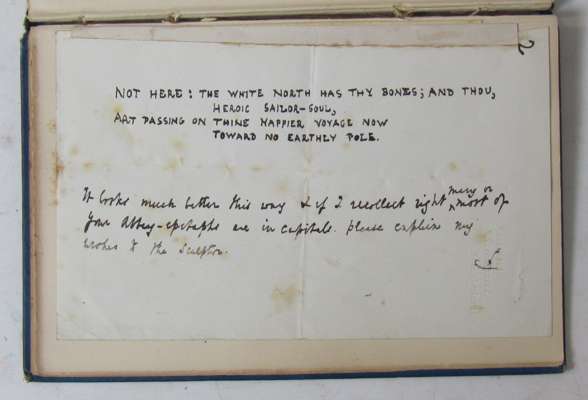 2
NOT HERE: THE WHITE NORTH HAS THY BONES; AND THOU,
HEROIC SAILOR-SOUL,
ART PASSING ON THINE HAPPIER VOYAGE NOW
TOWARD NO EARTHLY POLE.
It looks much better this way & if I recollect right many or most of
your Abbey-epitaphs are in capitals. please explain my
wishes to the Sculptor.